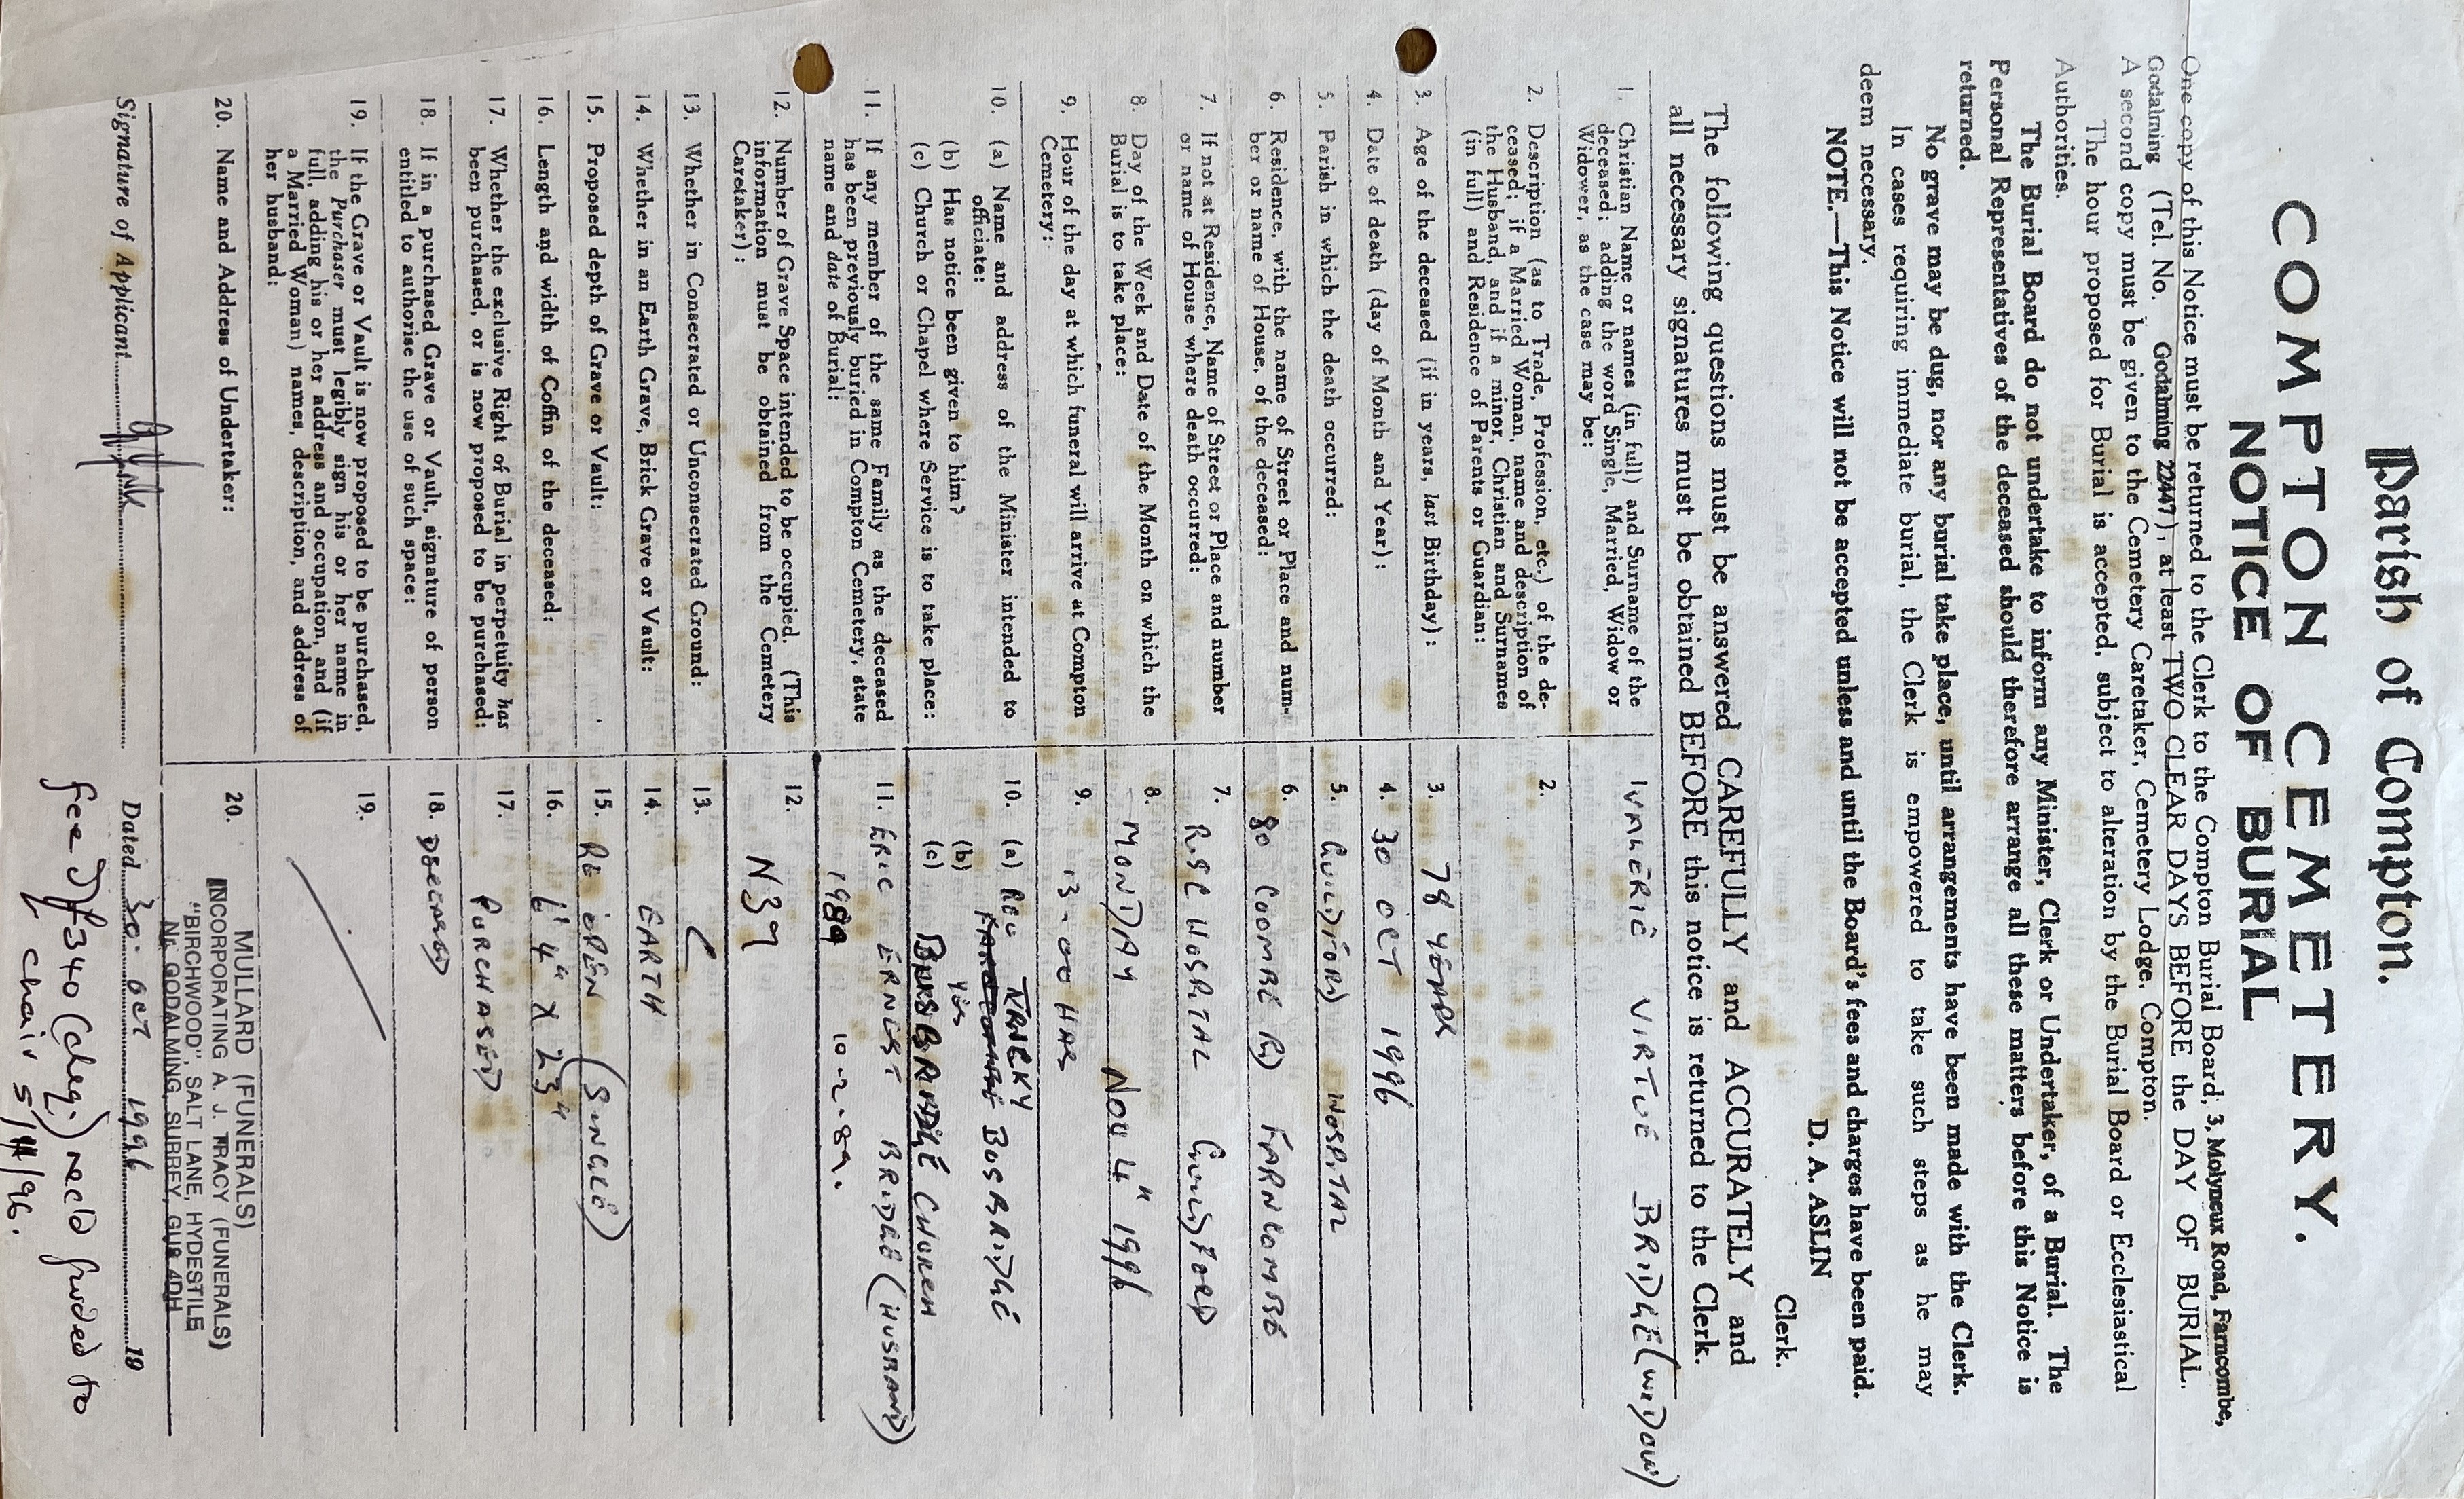 Parish of Compton.
COMPTON CEMETERY.
NOTICE OF BURIAL
One copy of this Notice must be returned to the Clerk to the Compton Burial Board, 3, Molyneux Road, Farncombe,
Godalming (Tel. No. Godalming 22447), at least TWO CLEAR DAYS BEFORE the DAY OF BURIAL.
A second copy must be given to the Cemetery Caretaker, Cemetery Lodge, Compton.
The hour proposed for Burial is accepted, subject to alteration by the Burial Board or Ecclesiastical
Authorities.
The Burial Board do not undertake to inform any Minister, Clerk or Undertaker, of a Burial. The
Personal Representatives of the deceased should therefore arrange all these matters before this Notice is
returned.
No grave may be dug, nor any burial take place, until arrangements have been made with the Clerk.
In cases requiring immediate burial, the Clerk is empowered to take such steps as he may
deem necessary.
NOTE.—This Notice will not be accepted unless and until the Board's fees and charges have been paid.
D. A. ASLIN
Clerk.
The following questions must be answered CAREFULLY and ACCURATELY and
all necessary signatures must be obtained BEFORE this notice is returned to the Clerk.
1. Christian Name or names (in full) and Surname of the
deceased; adding the word Single, Married, Widow or
Widower, as the case may be:
VALERIE VIRTUE BRIDGE (WIDOW)
2. Description (as to Trade, Profession, etc.) of the de-
ceased; if a Married Woman, name and description of
the Husband, and if a minor, Christian and Surnames
(in full) and Residence of Parents or Guardian:
2.
3. Age of the deceased (if in years, last Birthday):
3. 78 YEARS
4. Date of death (day of Month and Year):
4. 30 OCT 1996
5. Parish in which the death occurred:
5. GUILDFORD HOSPITAL
6. Residence, with the name of Street or Place and num-
ber or name of House, of the deceased:
6. 80 COOMBE RD FARNCOMBE
7. If not at Residence, Name of Street or Place and number
or name of House where death occurred:
7. RSC HOSPITAL GUILDFORD
8. Day of the Week and Date of the Month on which the
Burial is to take place:
8. MONDAY NOV 4" 1996
9. Hour of the day at which funeral will arrive at Compton
Cemetery:
9. 13-00 HRS
10. (a) Name and address of the Minister intended to
officiate:
10. (a) REV BUSBRIDGE
(b) Has notice been given to him?
(b) YES
(c) Church or Chapel where Service is to take place:
(c) BUSBRIDGE CHURCH
11. If any member of the same Family as the deceased
has been previously buried in Compton Cemetery, state
name and date of Burial:
11. ERIC ERNEST BRIDGE (HUSBAND)
1989 10-2-89.
12. Number of Grave Space intended to be occupied. (This
information must be obtained from the Cemetery
Caretaker):
12. N39
13. Whether in Consecrated or Unconsecrated Ground:
13. C
14. Whether in an Earth Grave, Brick Grave or Vault:
14. EARTH
15. Proposed depth of Grave or Vault:
15. RE OPEN (SINGLE)
16. Length and width of Coffin of the deceased:
16. 6' 4" X 23"
17. Whether the exclusive Right of Burial in perpetuity has
been purchased, or is now proposed to be purchased:
17. PURCHASED
18. If in a purchased Grave or Vault, signature of person
entitled to authorise the use of such space:
18. DECEASED
19. If the Grave or Vault is now proposed to be purchased,
the Purchaser must legibly sign his or her name in
full, adding his or her address and occupation, and (if
a Married Woman) names, description, and address of
her husband:
19.
20. Name and Address of Undertaker:
20. MULLARD (FUNERALS)
INCORPORATING A. J. TRACY (FUNERALS)
"BIRCHWOOD", SALT LANE, HYDESTILE
Nr. GODALMING, SURREY, GU8 4DH
Signature of Applicant
Dated 30 OCT 1996 19
fee of £340 (cheq.) rec'd fwded to
chair 5/11/96.